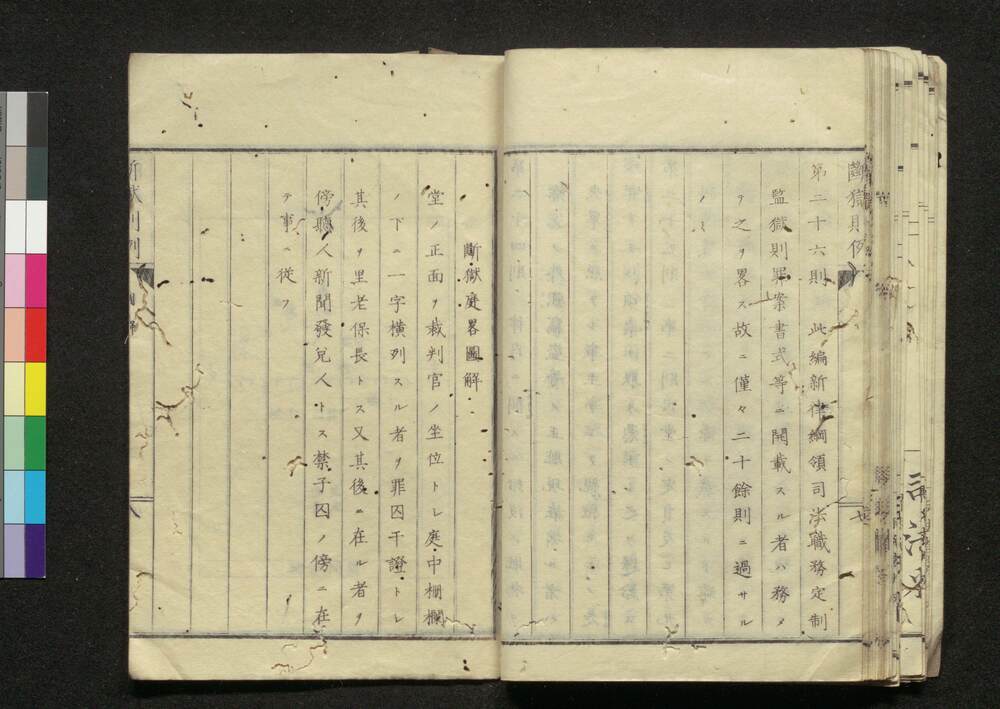 斷獄則例
第二十六則 此編新律綱領司法職務定制
監獄則罪案書式等ニ開載スル者ハ務メ
テ之ヲ畧ス故ニ僅々二十餘則ニ過サル
ノミ
斷獄庭畧圖解
堂ノ正面ヲ裁判官ノ坐位トレ庭中柵欄
ノ下ニ一字横列スル者ヲ罪囚干證トレ
其後ヲ里老保長トス又其後ニ在ル者ヲ
傍聽人新聞發兌人トス禁子囚ノ傍ニ在
テ事ニ從フ
斷獄則例